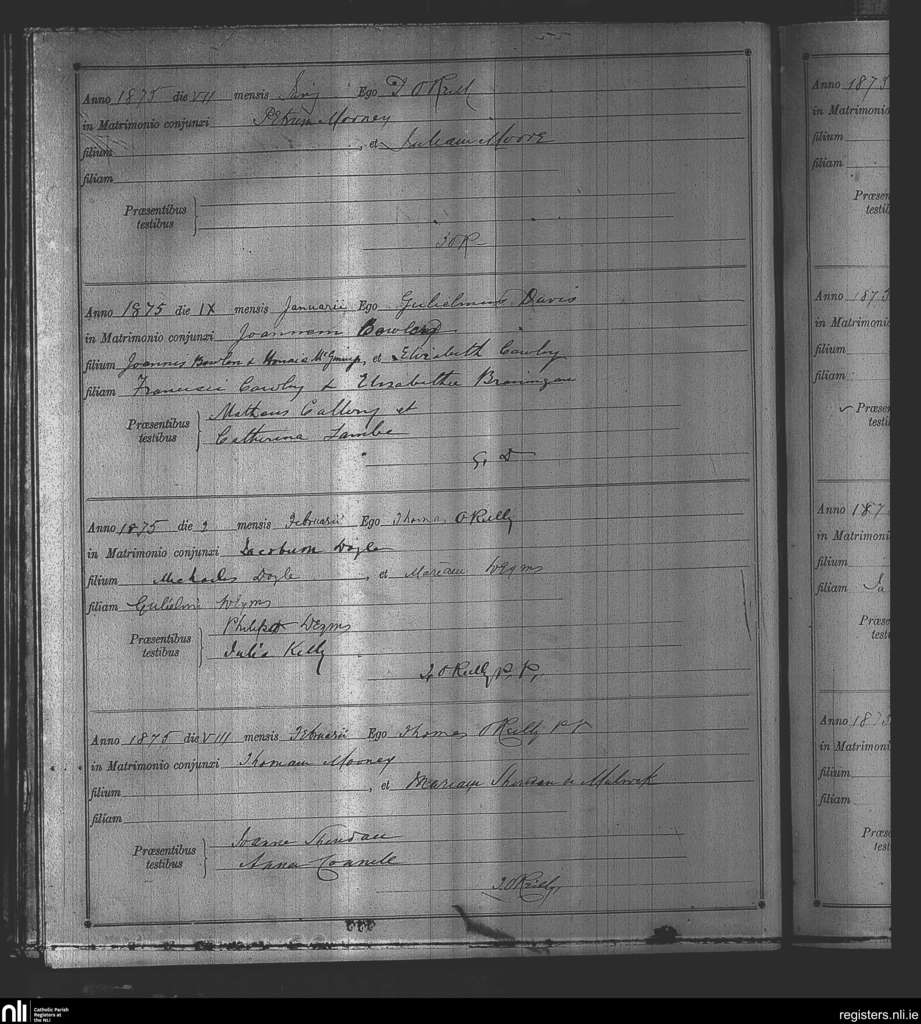 Anno 1875 die VII mensis Ego T O Reill
in Matrimonio conjunxi Petrum Mooney
filium , et Juliam Moore
filiam
Præsentibus
testibus
T O R
Anno 1875 die IX mensis Januarii Ego Gulielmus Davis
in Matrimonio conjunxi Joannem
filium Joannis Bowlen & Honora McGinnis, et Elizabeth Cowley
filiam Francisci Cowley & Elizabetha
Præsentibus
testibus
Matheus Callery et
Catherina Lambe
G. D
Anno 1875 die 2 mensis Februarii Ego Thomas O Reilly
in Matrimonio conjunxi Jacobum Doyle
filium Michaelis Doyle , et Mariam Weyms
filiam Gulielmi Weyms
Præsentibus
testibus
Philip Weyms
Julia Kelly
T, O Reilly P, P,
Anno 1875 die VIII mensis Februarii Ego Thomas O Reilly P P
in Matrimonio conjunxi Thomam Mooney
filium , et Mariam de
filiam
Præsentibus
testibus
Joanne Sheridan
Anna
T. O Reilly,
Anno 1873
in Matrimonio
filium
filiam
Anno 1873
in Matrimonio
filium
filiam
Anno 187
in Matrimoni
filium
filiam
Anno 187
in Matrimoni
filium
filiam
nli Catholic Parish
Registers at
the NLI
registers.nli.ie